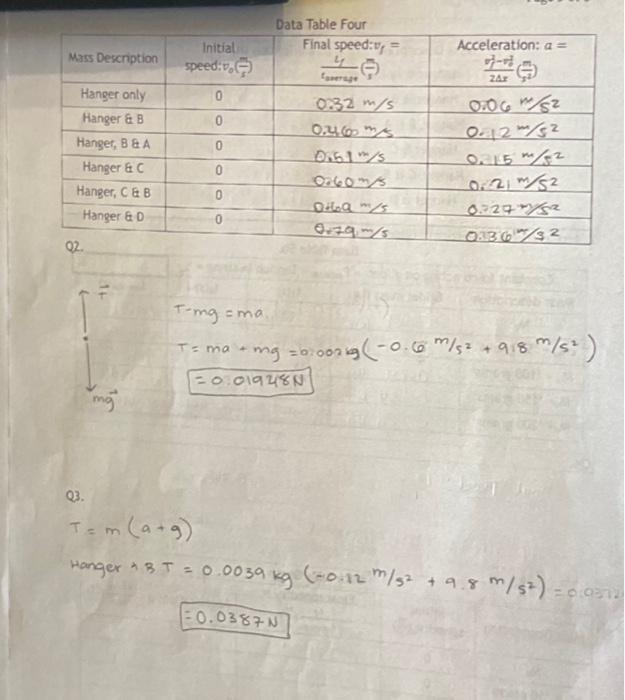 Data Table Four
Mass Description | Initial speed: v₀(m/s) | Final speed: v_f = L_f/t_average (m/s) | Acceleration: a = (v_f² - v₀²)/2Δx (m/s²)
Hanger only | 0 | 0.32 m/s | 0.06 m/s²
Hanger & B | 0 | 0.46 m/s | 0.12 m/s²
Hanger, B & A | 0 | 0.51 m/s | 0.15 m/s²
Hanger & C | 0 | 0.60 m/s | 0.21 m/s²
Hanger, C & B | 0 | 0.69 m/s | 0.27 m/s²
Hanger & D | 0 | 0.79 m/s | 0.36 m/s²
Q2.
T
T-mg = ma
T = ma + mg = 0.002kg (-0.6 m/s² + 9.8 m/s²)
= 0.01948N
mg
Q3.
T = m (a + g)
Hanger & B T = 0.0039 kg (-0.12 m/s² + 9.8 m/s²)
= 0.0387N